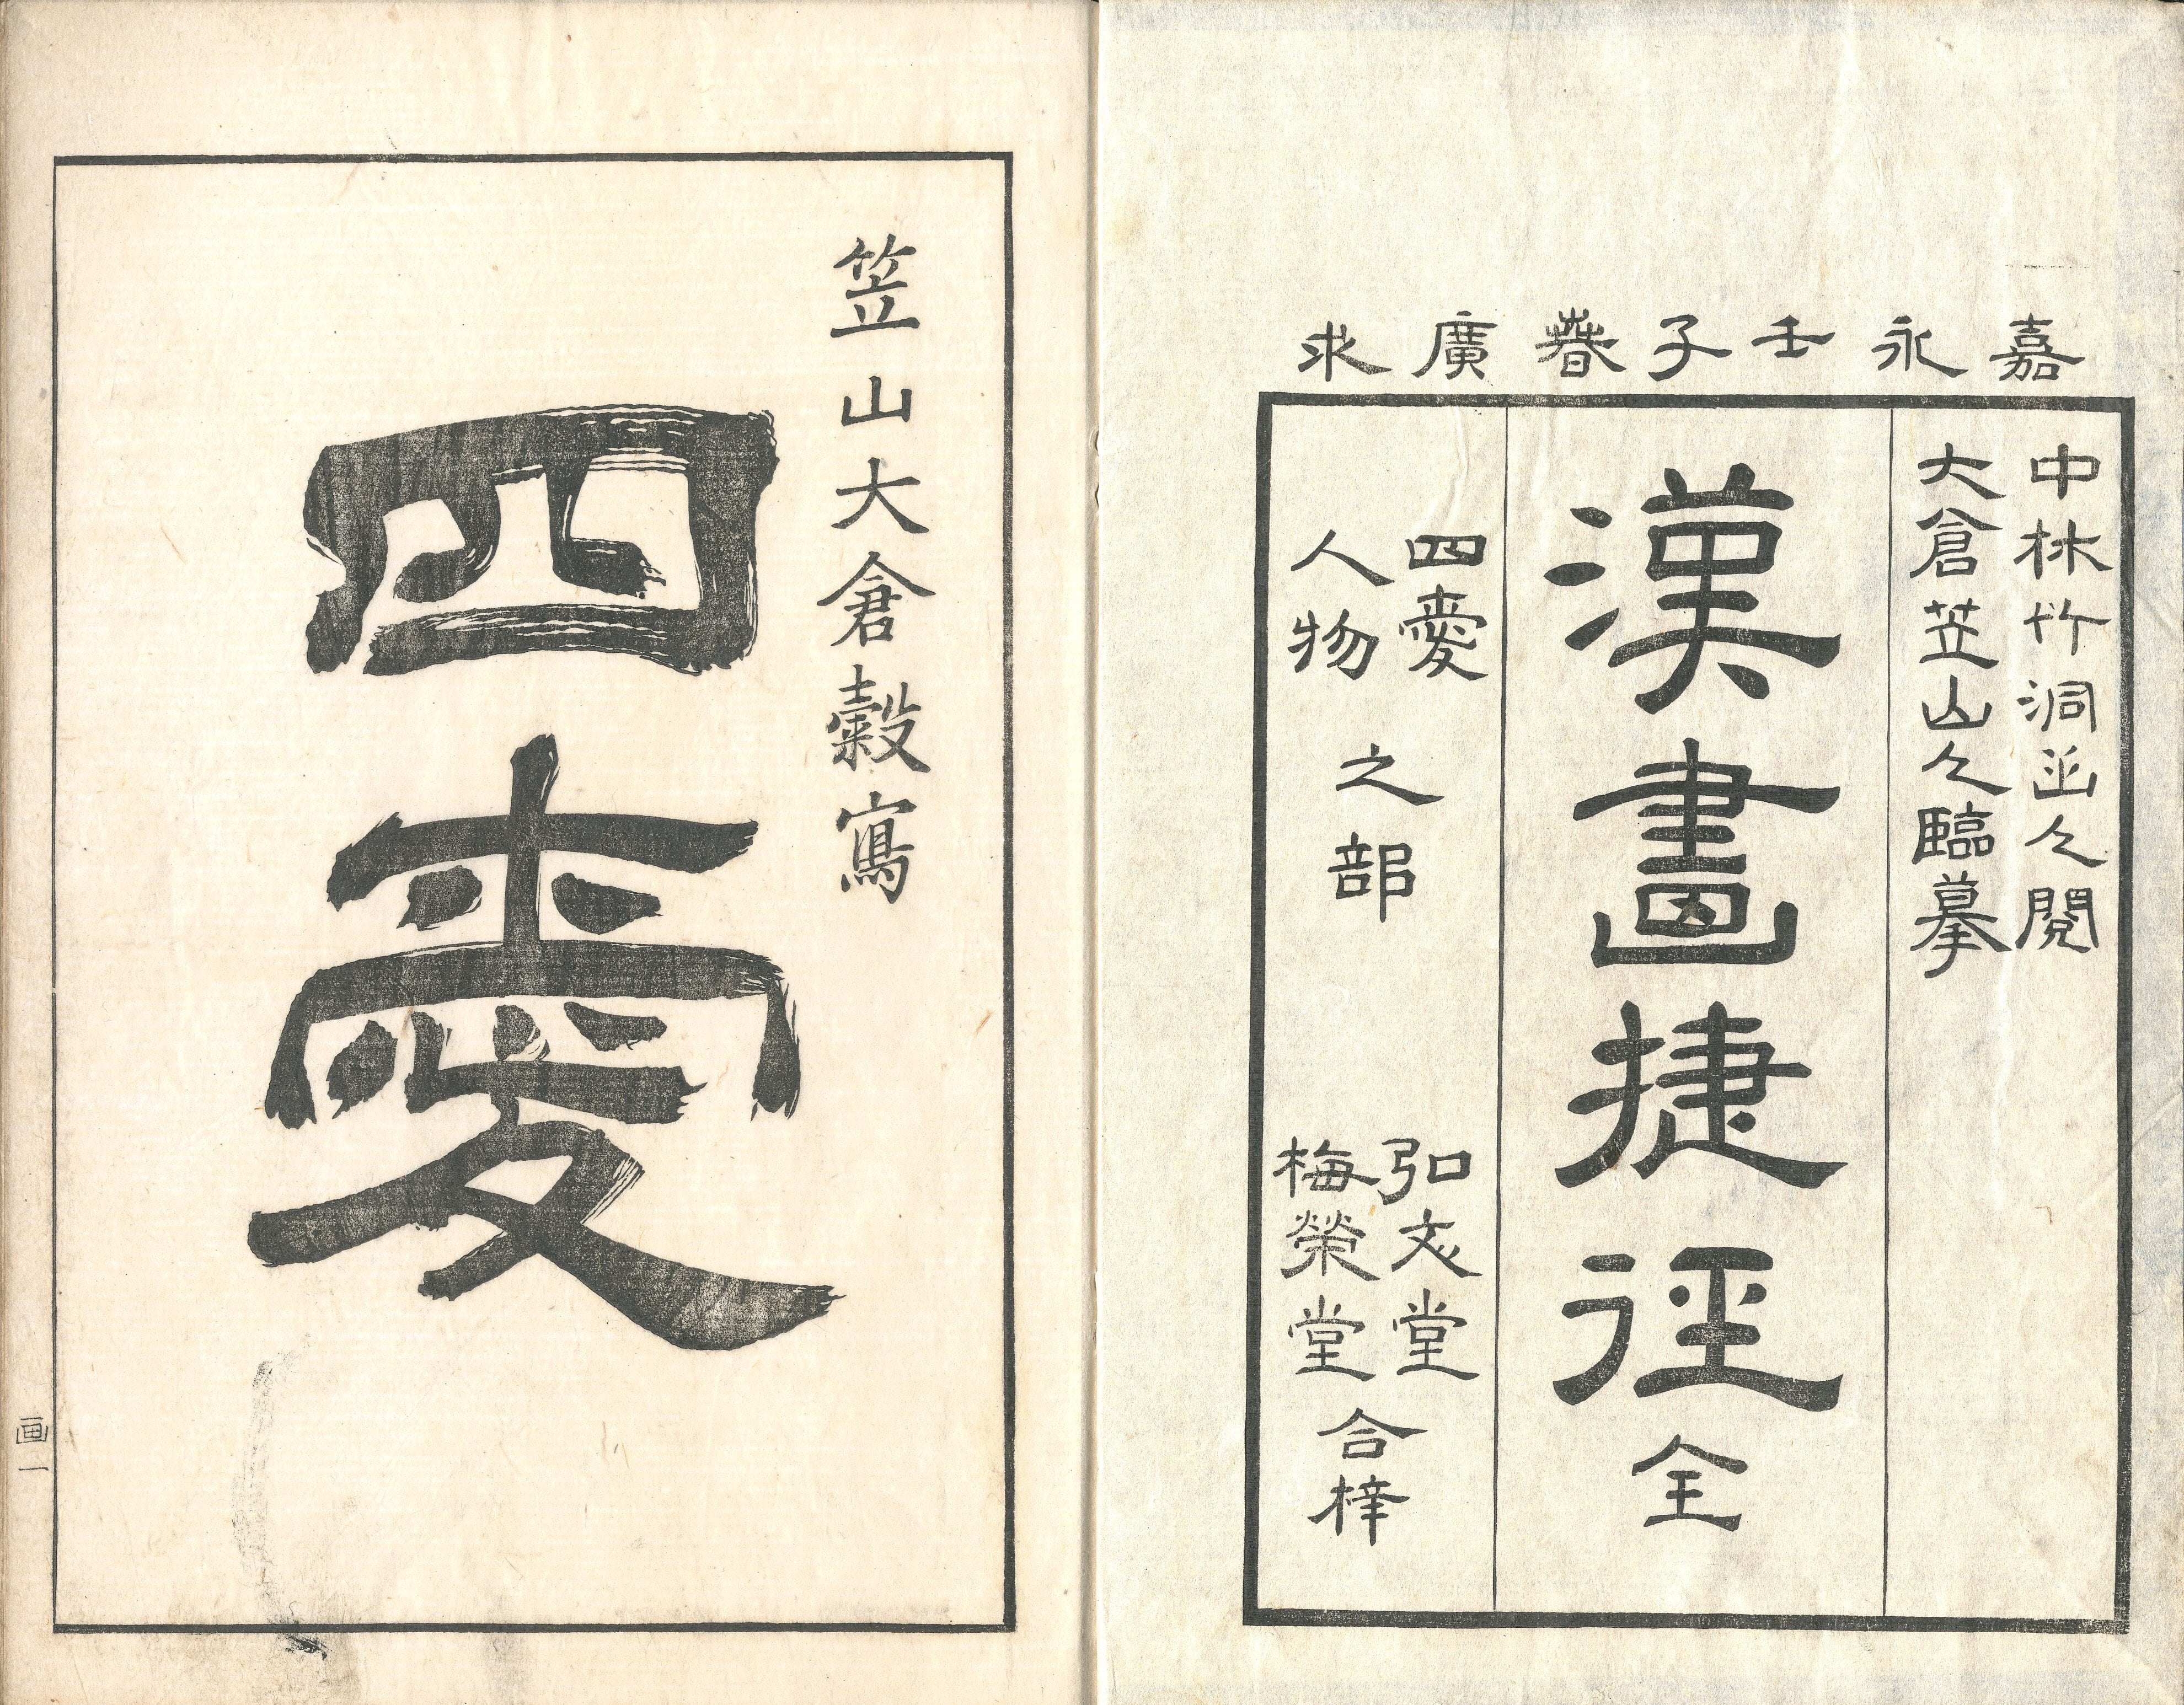 嘉永壬子春廣求
中林竹洞並々閲
大倉笠山々臨摹
漢畫捷徑全
四愛
人物
之部
弘文堂
梅榮堂
合梓
笠山大倉穀寫
四愛
画一